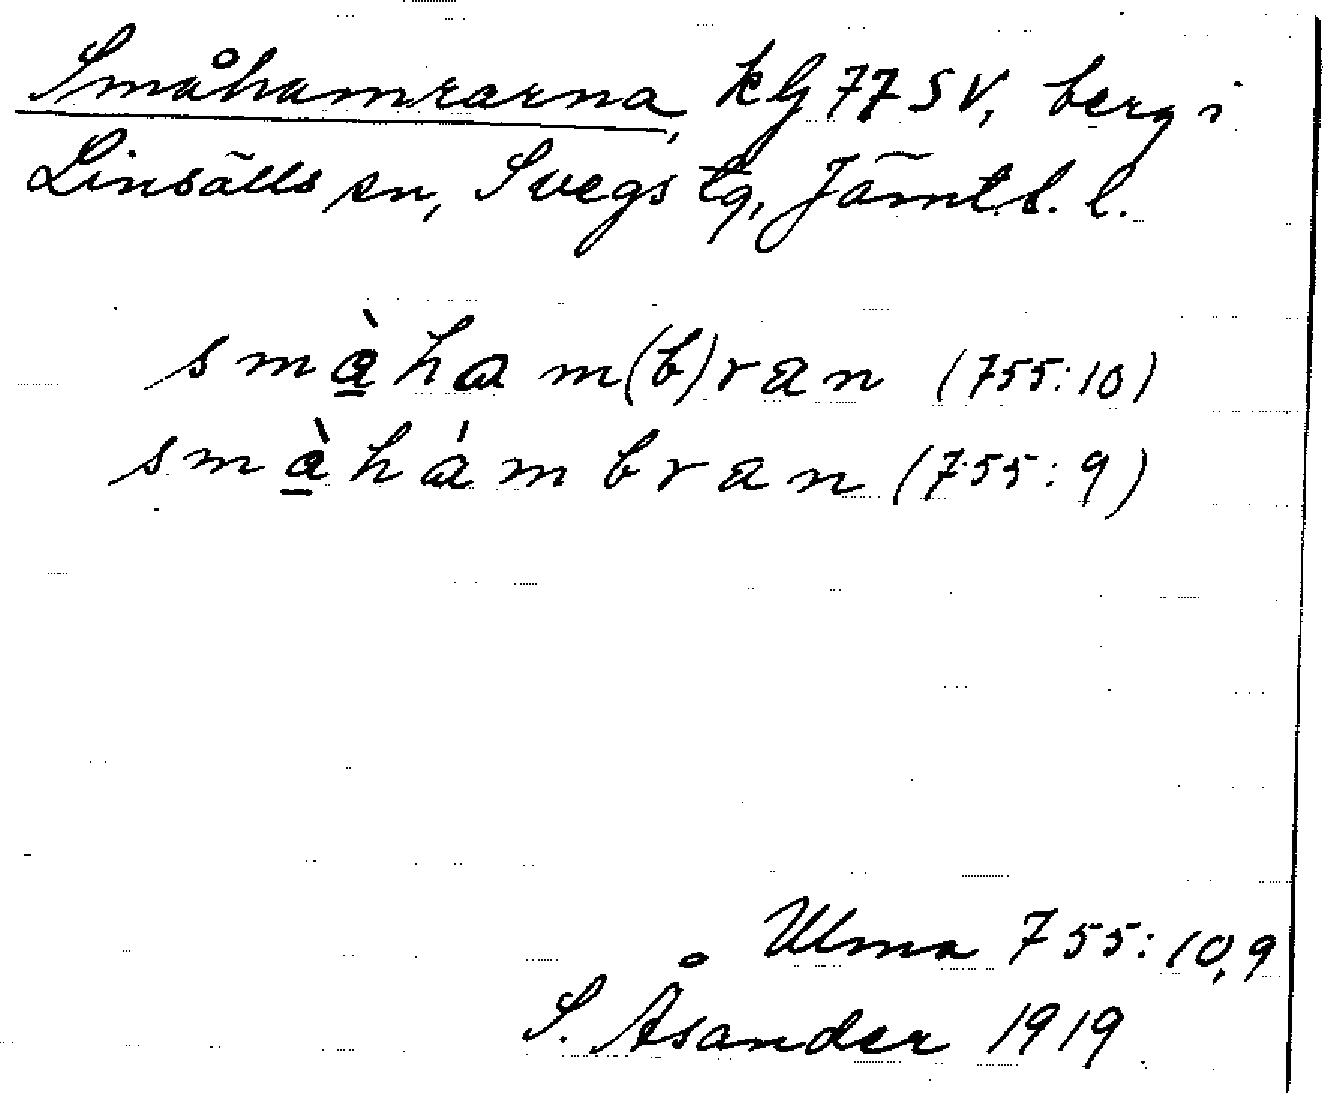 Småhamrarna, kG 77 SV, berg i
Linsälls sn, Svegs tg, Jämtl. l.
smà̱ham(b)ran (755:10)
smà̱hámbran (755:9)
Ulma 755:10,9
S. Åsander 1919